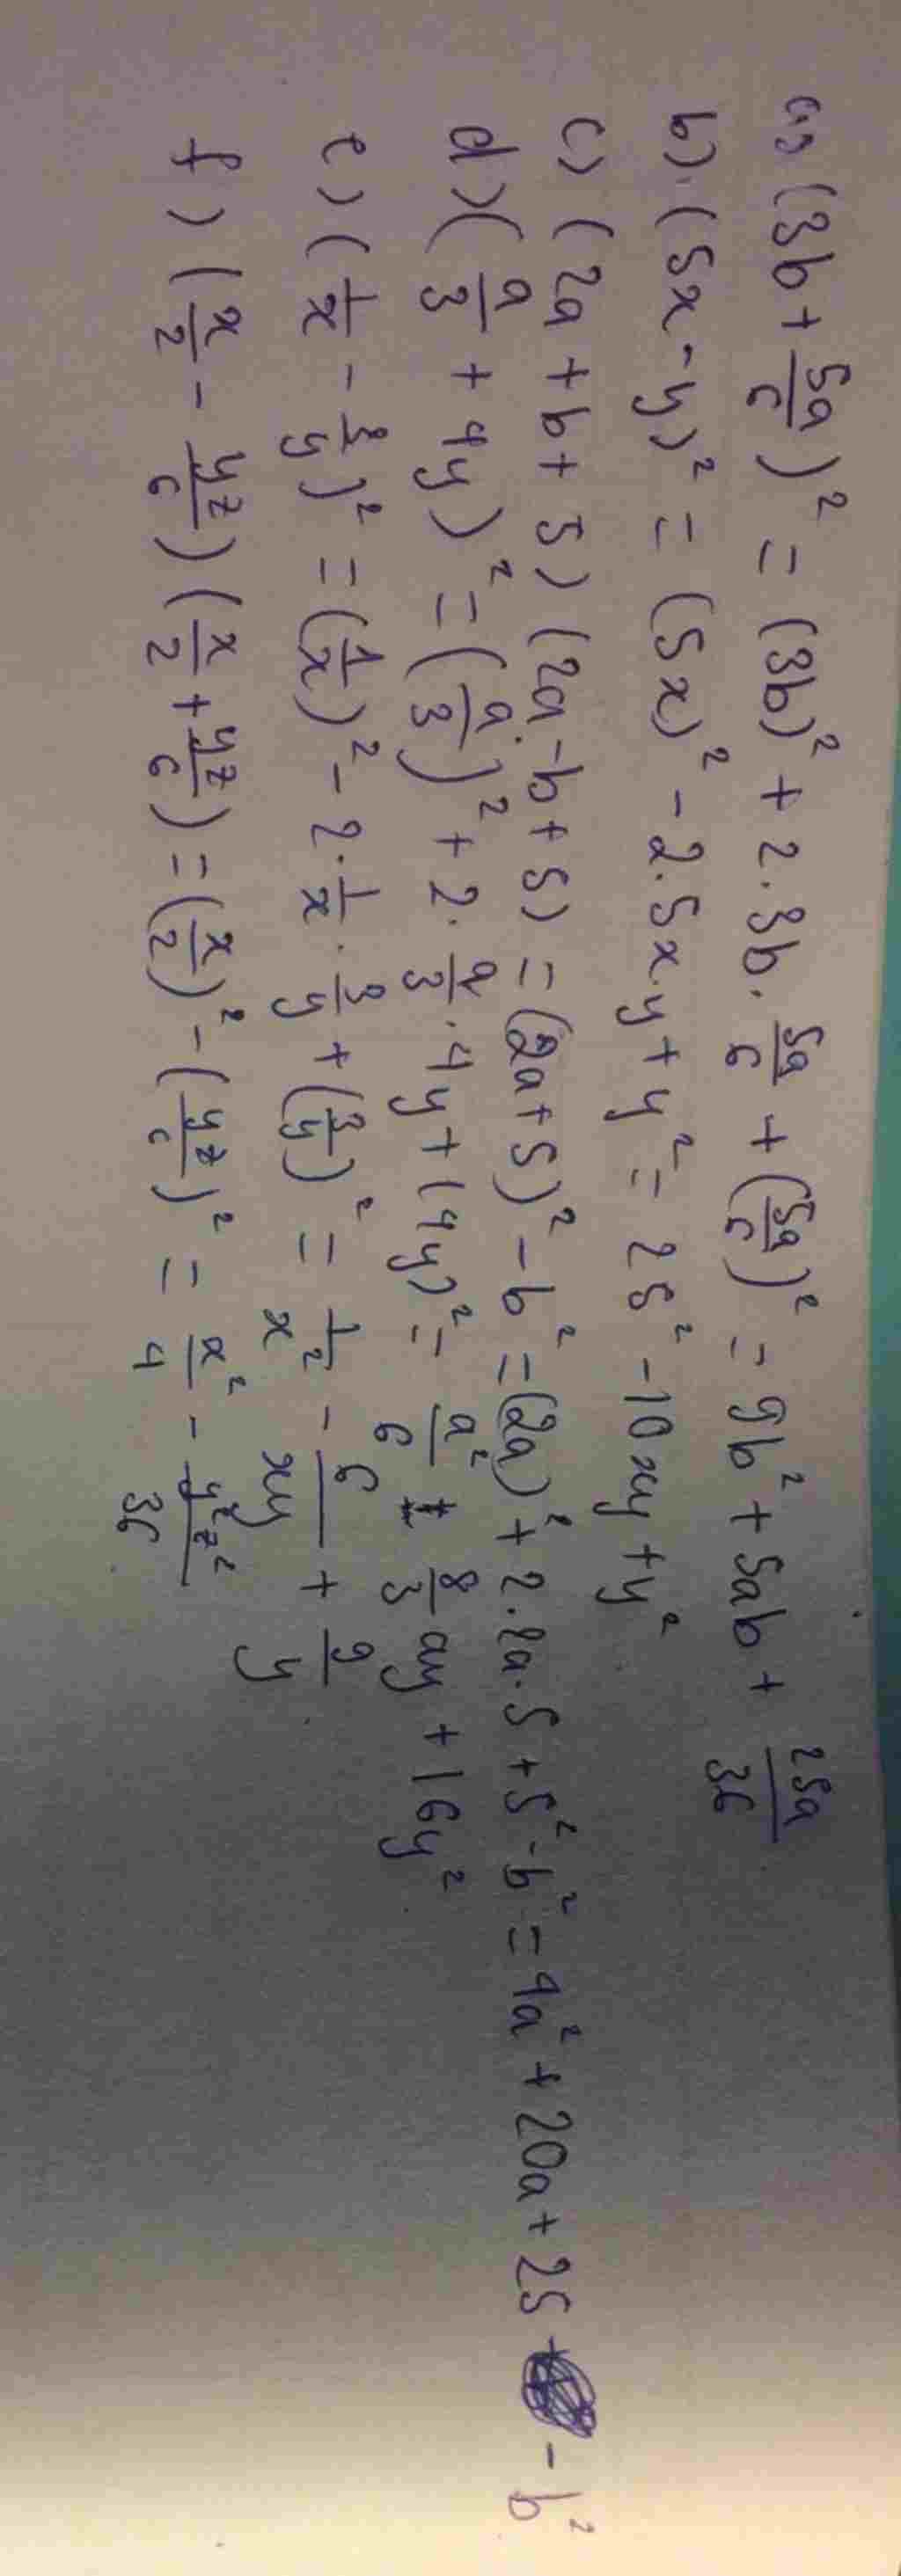 a) (3b + 5a/6)² = (3b)² + 2 . 3b . 5a/6 + (5a/6)² = 9b² + 5ab + 25a/36
b) (5x - y)² = (5x)² - 2 . 5x . y + y² = 25² - 10xy + y²
c) (2a + b + 5) (2a - b + 5) = (2a + 5)² - b² = (2a)² + 2 . 2a . 5 + 5² - b² = 4a² + 20a + 25 - b²
d) (a/3 + 4y)² = (a/3)² + 2 . a/3 . 4y + (4y)² = a²/6 + 8/3 ay + 16y²
e) (1/x - 3/y)² = (1/x)² - 2 . 1/x . 3/y + (3/y)² = 1/x² - 6/xy + 9/y
f) (x/2 - yz/6) (x/2 + yz/6) = (x/2)² - (yz/6)² = x²/4 - y²z²/36